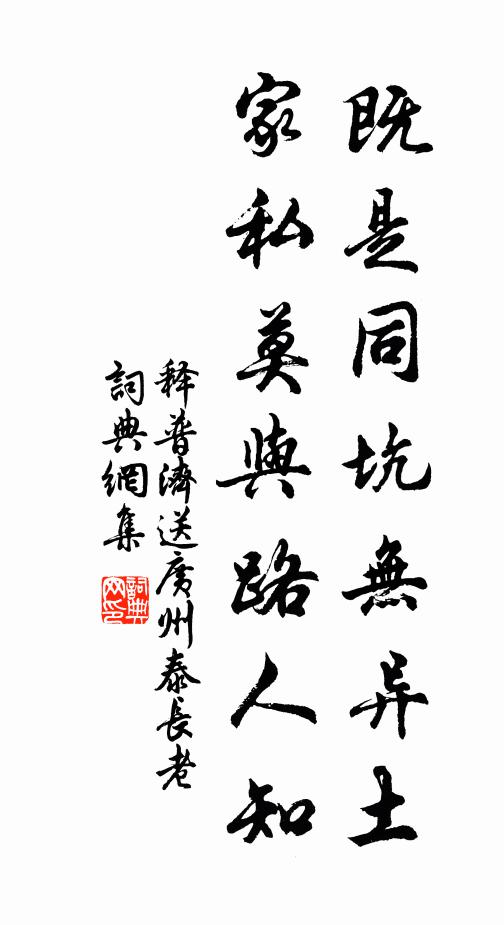 既是同坑無异土
家私莫與路人知
释普濟送廣州泰長老
詞典網集
詞典
网印